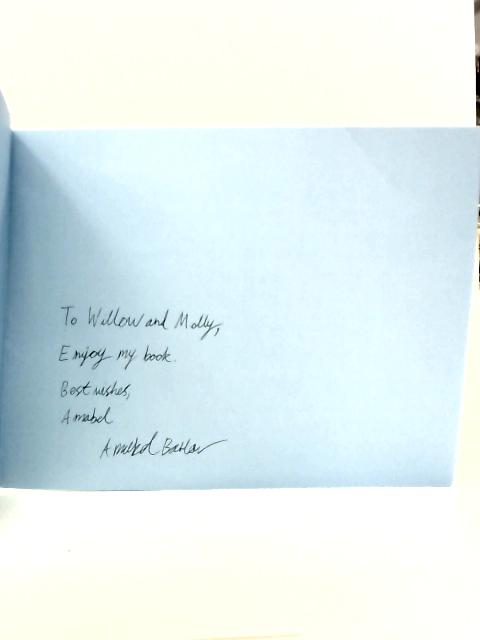 To Willow and Molly,
Enjoy my book.
Best wishes,
Amabel
Amabel